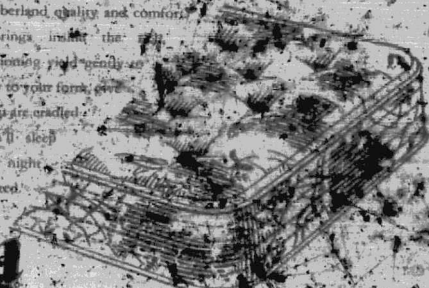 berland quality and comfort.
rings insure the
tioning yield gently to
to your form, give
u are cradled
ll sleep
night